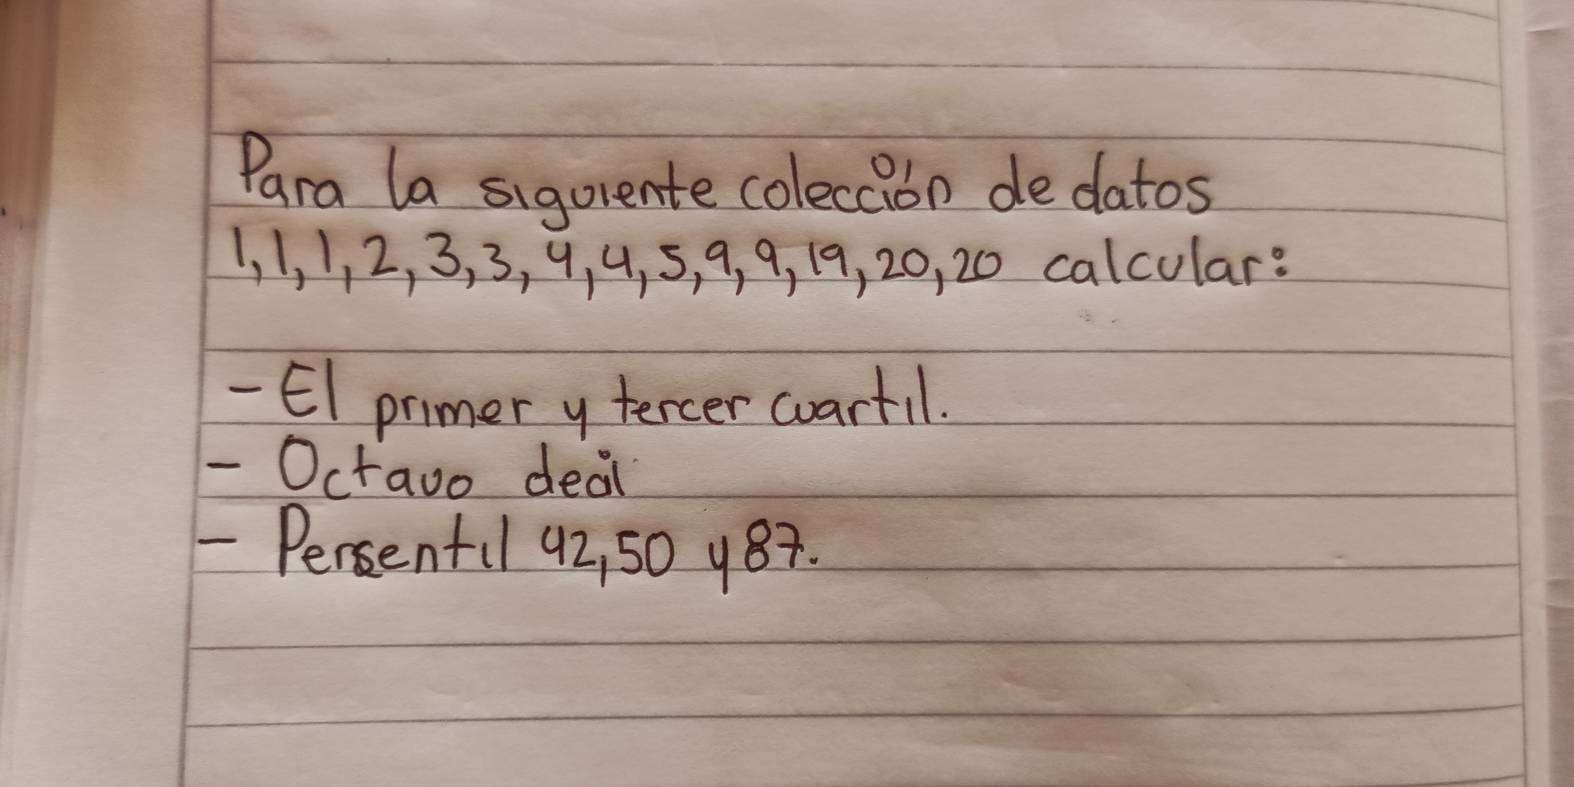 Para la siguiente colección de datos
1, 1, 1, 2, 3, 3, 4, 4, 5, 9, 9, 19, 20, 20 calcular:
- El primer y tercer cuartil.
- Octavo decil
- Persentil 42, 50 y 87.